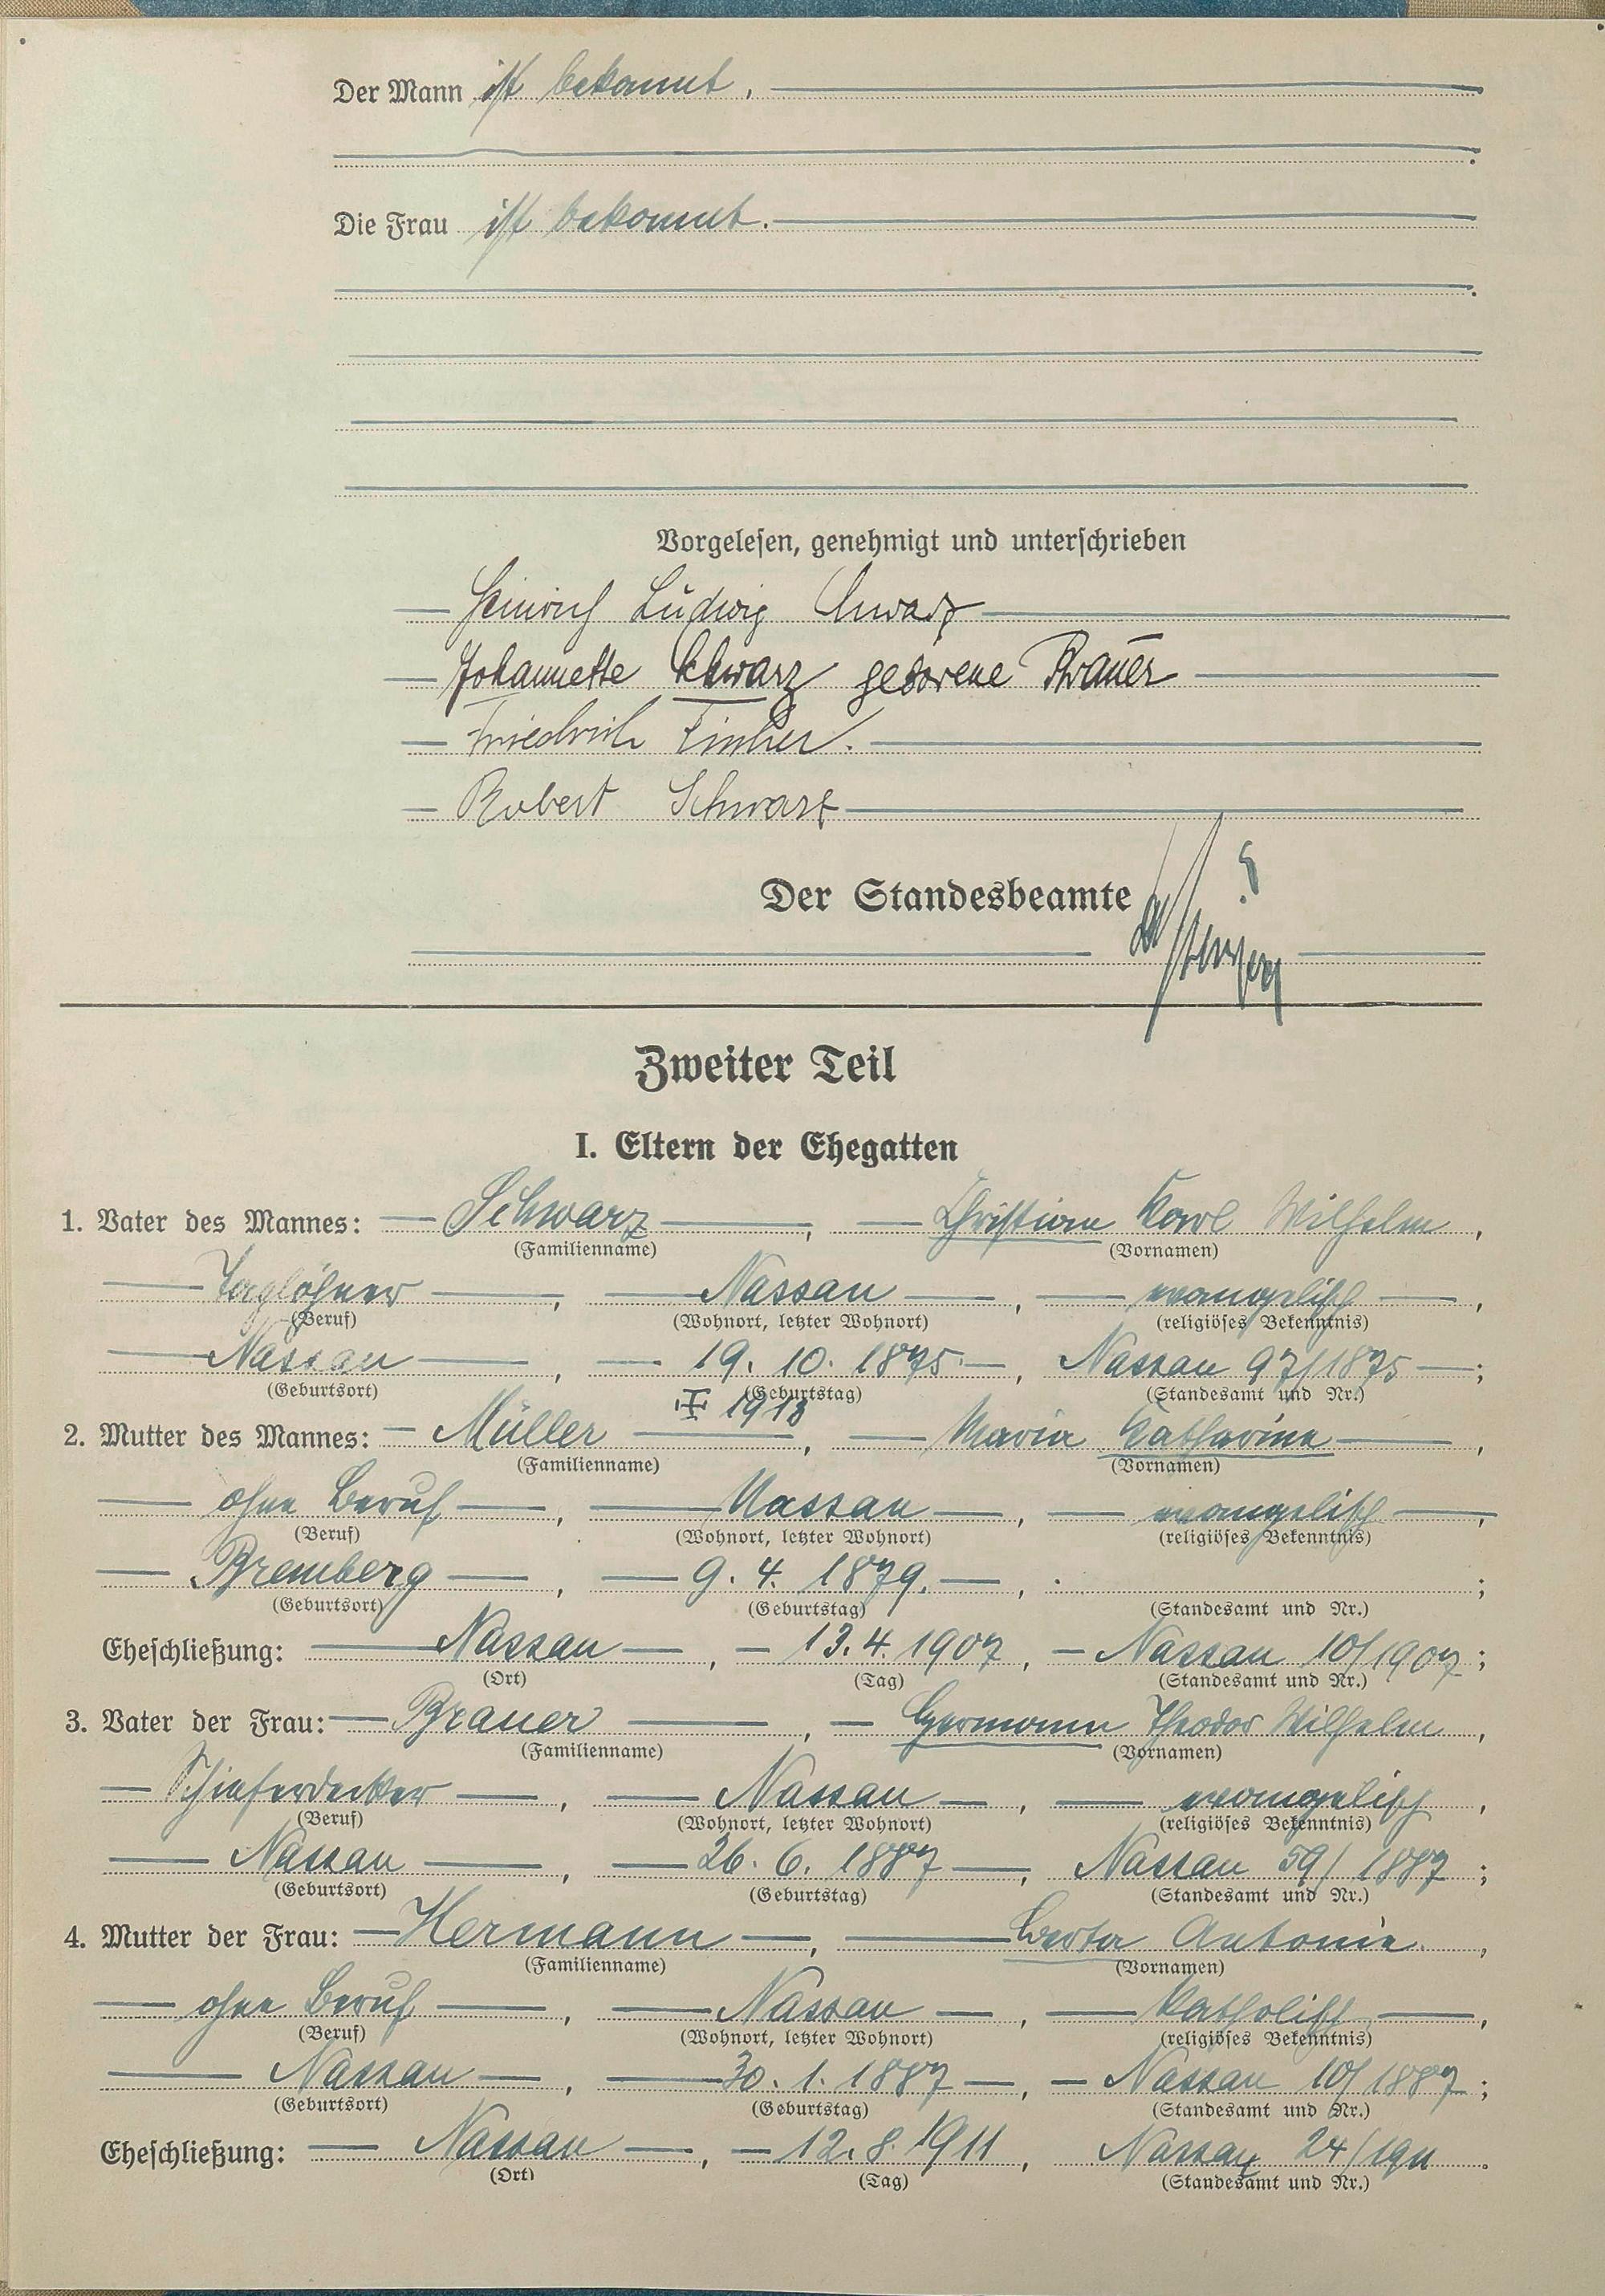 Der Mann ist bekannt.
Die Frau ist bekannt.
Vorgelesen, genehmigt und unterschrieben
Heinrich Ludwig Schwarz
Johannette Schwarz geborene Brauer
Friedrich
Robert Schwarz
Der Standesbeamte
Zweiter Teil
I. Eltern der Ehegatten
1. Vater des Mannes: Schwarz, Christian Karl Wilhelm,
(Familienname) (Vornamen)
Taglöhner, Nassau, evangelisch,
(Beruf) (Wohnort, letzter Wohnort) (religiöses Bekenntnis)
Nassau, 19. 10. 1875, Nassau 97/1875;
(Geburtsort) (Geburtstag) (Standesamt und Nr.)
2. Mutter des Mannes: Müller, Maria Katharina,
(Familienname) (Vornamen)
ohne Beruf, Nassau, evangelisch,
(Beruf) (Wohnort, letzter Wohnort) (religiöses Bekenntnis)
Bremberg, 9. 4. 1879.,
(Geburtsort) (Geburtstag) (Standesamt und Nr.)
Eheschließung: Nassau, 13. 4. 1907, Nassau 10/1907;
(Ort) (Tag) (Standesamt und Nr.)
3. Vater der Frau: Brauer, Hermann Theodor Wilhelm,
(Familienname) (Vornamen)
Schieferdecker, Nassau, evangelisch,
(Beruf) (Wohnort, letzter Wohnort) (religiöses Bekenntnis)
Nassau, 26. 6. 1887, Nassau 59/1887;
(Geburtsort) (Geburtstag) (Standesamt und Nr.)
4. Mutter der Frau: Hermann, Berta Antonie,
(Familienname) (Vornamen)
ohne Beruf, Nassau, katholisch,
(Beruf) (Wohnort, letzter Wohnort) (religiöses Bekenntnis)
Nassau, 30. 1. 1887, Nassau 10/1887;
(Geburtsort) (Geburtstag) (Standesamt und Nr.)
Eheschließung: Nassau, 12. 8. 1911, Nassau 24/1911.
(Ort) (Tag) (Standesamt und Nr.)